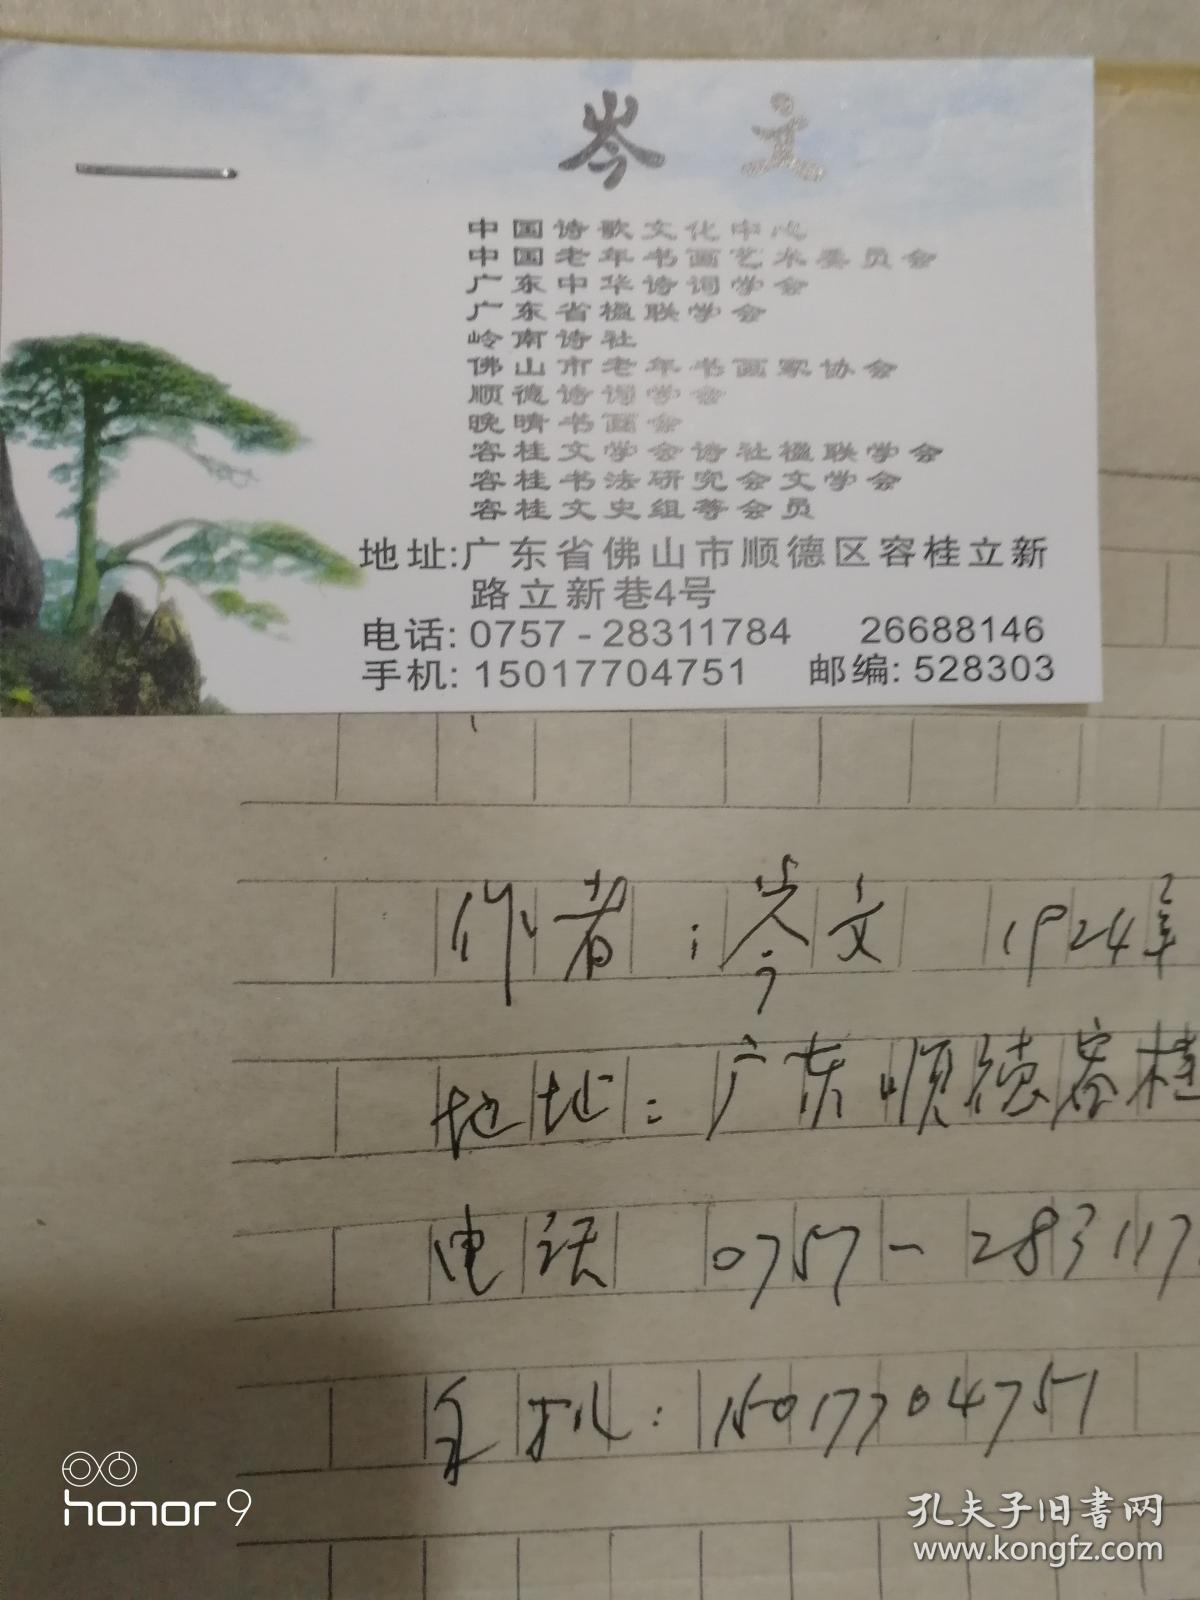 岑文
中国诗歌文化中心
中国老年书画艺术委员会
广东中华诗词学会
广东省楹联学会
岭南诗社
佛山市老年书画家协会
顺德诗词学会
晚晴书画会
容桂文学会诗社楹联学会
容桂书法研究会文学会
容桂文史组等会员
地址:广东省佛山市顺德区容桂立新
路立新巷4号
电话: 0757-28311784 26688146
手机: 15017704751 邮编: 528303
作者：岑文 1924年
地址：广东顺德容桂
电话 0757-283117
手机：15017704751
honor 9
孔夫子旧書网
www.kongfz.com